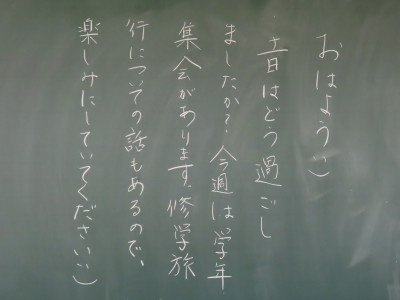 おはよう:)
土日はどう過ごし
ましたか?今週は学年
集会があります。修学旅
行についての話もあるので、
楽しみにしていてください:)